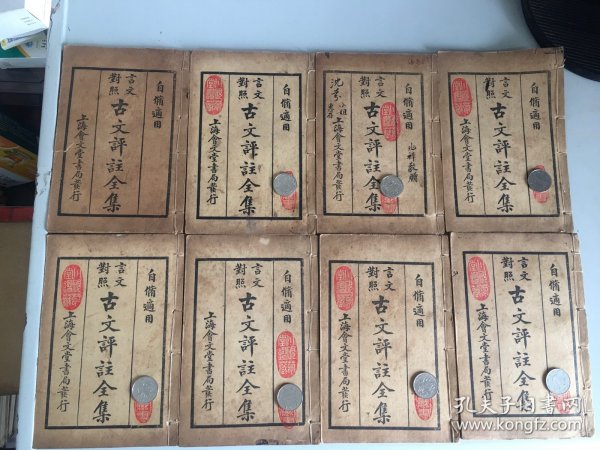 自脩適用
言文對照
古文評註全集
上海會文堂書局發行
自脩適用
言文對照
古文評註全集
上海會文堂書局發行
自脩適用
言文對照
古文評註全集
上海會文堂書局發行
自脩適用
言文對照
古文評註全集
上海會文堂書局發行
自脩適用
言文對照
古文評註全集
上海會文堂書局發行
自脩適用
言文對照
古文評註全集
上海會文堂書局發行
自脩適用
言文對照
古文評註全集
上海會文堂書局發行
自脩適用
言文對照
古文評註全集
上海會文堂書局發行
孔夫子旧书网